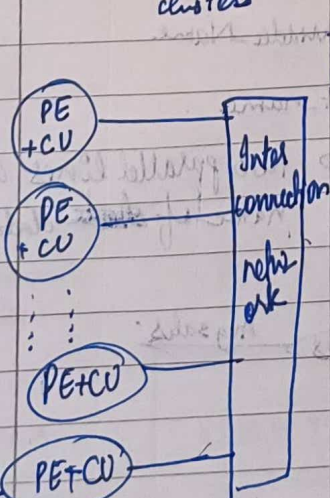 clusters
PE
+CU
PE
+ CU
PE+CU
PE+CU
Inter
connection
netw
ork